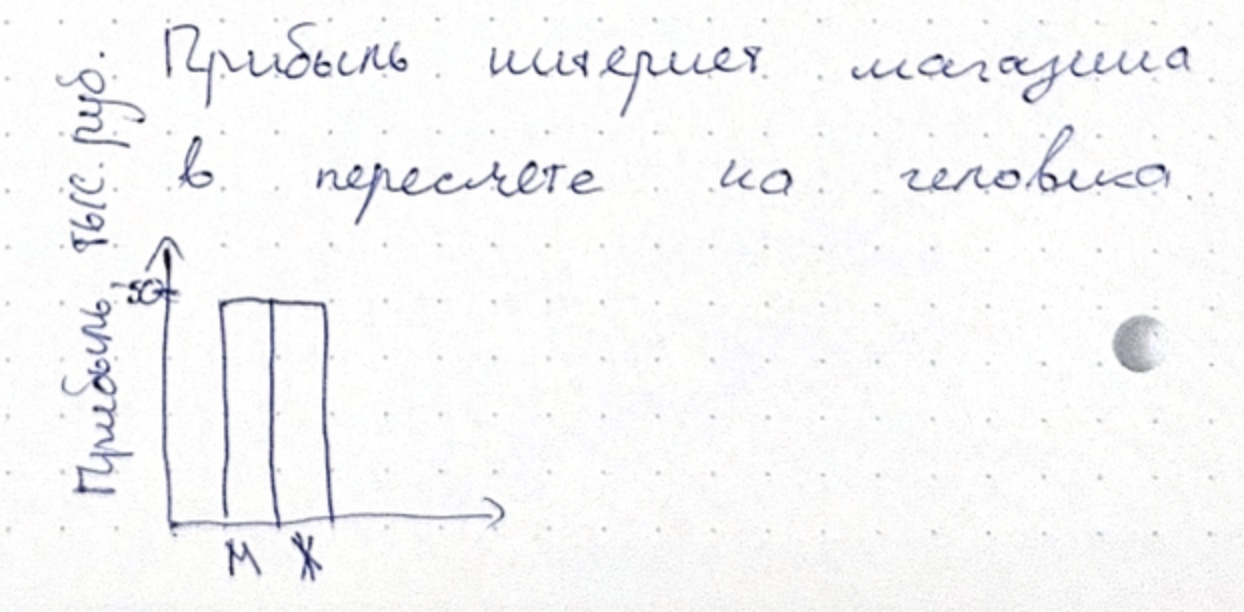 Прибыль интернет магазина
в пересчете на человека
Прибыль, тыс. руб.
50
М Ж